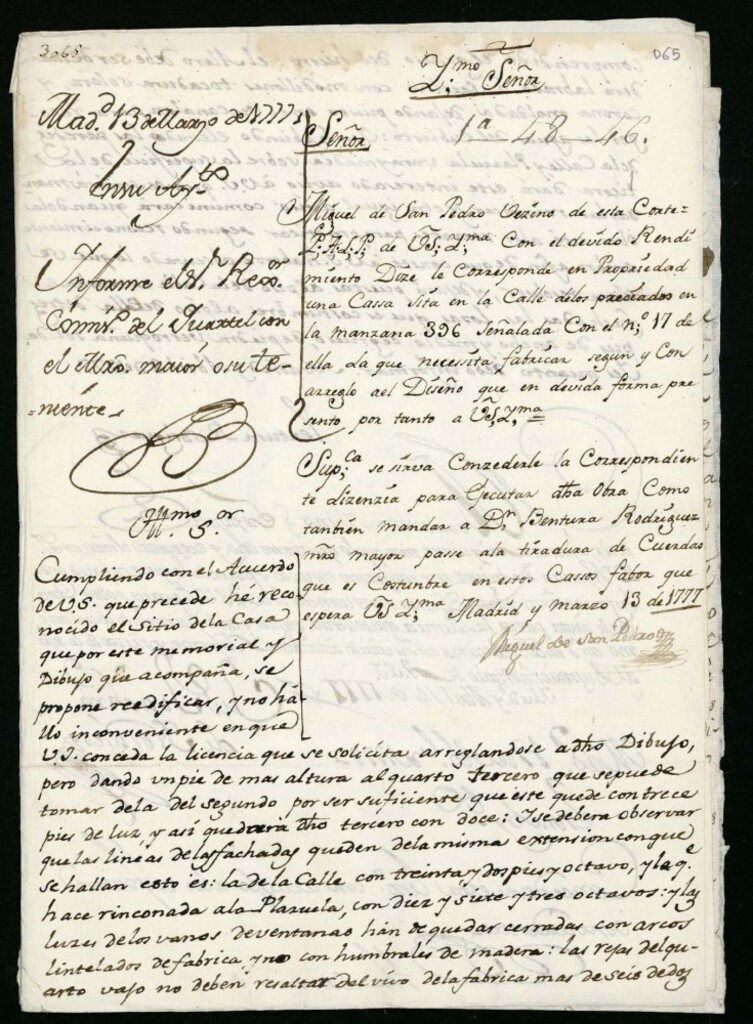 3068
065
Y;mo Señor
Mad.d 13 de Marzo de 1777
En su Ay.to
Informe el S.r Reg.or
Comis.o del Quartel con
el Mro. maior o su te-
niente-
Señor
1a 48-46.
Miguel de San Pedro Vezino de esta Corte-
P;A;L;P; de VS; Y;ma Con el devido Rendi
miento Dize le Corresponde en Propriedad
una Cassa sita en la Calle delos preciados en
la manzana 396 Señalada Con el n;o 17 de
ella La que necessita fabricar segun y Con
arreglo ael Diseño que en devida forma pre
sento por tanto a VS, Y,ma =
Sup;ca se sirva Conzederle la Correspondien
te lizenzia para Ejecutar dha Obra Como
tanbien mandar a D.n Bentura Rodriguez
mro mayor passe ala tiradura de Cuerdas
que es Costunbre en estos Cassos fabor que
espera VS Y;ma Madrid y marzo 13 de 1777
Miguel de San Pedro
Yll.mo S.or
Cumpliendo con el Acuerdo
de V.S. que precede hé reco
nocido el Sitio dela Casa
que por este memorial y
Dibujo que acompaña, se
propone reedificar, y no há-
llo inconveniente en que
V.I. conceda la licencia que se solicita arreglandose a dho Dibujo,
pero dando un pie de mas altura al quarto tercero que se puede
tomar dela del segundo por ser suficiente que este quede con trece
pies de luz y así quedará dho tercero con doce: Y se debera observar
que las lineas de las fachadas queden dela misma extension con que
se hallan esto es: la dela Calle con treinta y dos pies y octavo, y la q.e
hace rinconada ala Plazuela, con diez y siete y tres octavos: y las
luzes delos vanos de ventanas hán de quedar cerradas con arcos
lintelados de fabrica y no con humbrales de madera: las rejas del qu-
arto vajo no deben resaltar del vivo dela fabrica mas de seis dedos